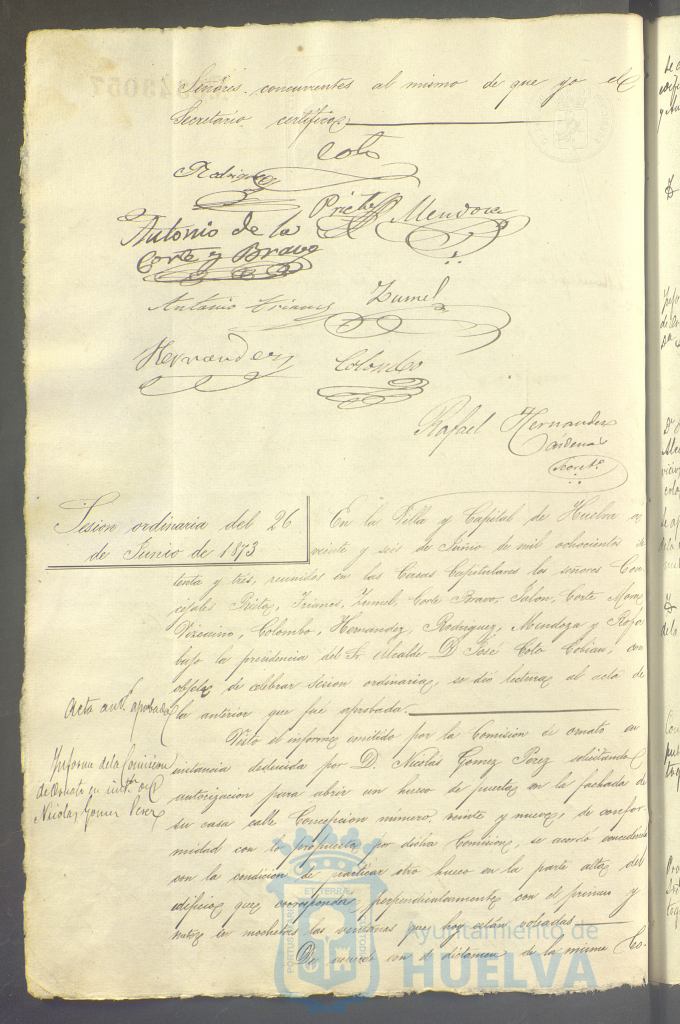 Señores concurrentes al mismo de que yo el
Secretario certifico
Coto
Rodriguez
Prieto
Mendoza
Antonio de la
Corte y Bravo
Antonio Trianes
Zumel
Hernandez
Colombo
Rafael Hernandez
Cárdenas
Secret.º
Sesion ordinaria del 26
de Junio de 1873
En la Villa y Capital de Huelva a
veinte y seis de Junio de mil ochocientos se
tenta y tres, reunidos en las Casas Capitulares los señores Con
cejales Prieto, Trianes, Zumel, Corte Bravo, Jalon, Corte Mora
Vizcaino, Colombo, Hernandez, Rodriguez, Mendoza y
bajo la presidencia del Sr. Alcalde D. José Coto Cobian, con
objeto de celebrar sesion ordinaria, se dió lectura al acta de
la anterior que fué aprobada.
Acta ant.r aprobada
Visto el informe emitido por la Comision de ornato en
instancia deducida por D. Nicolás Gomez Perez solicitando
autorizacion para abrir un hueco de puerta en la fachada de
su casa calle Concepcion número veinte y nueve, de confor
midad con lo propuesto por dicha Comision, se acordó concederla
con la condicion de practicar otro hueco en la parte alta del
edificio que corresponda perpendicularmente con el primero y
meter en mochetas las ventanas que hoy están voladas
Informe de la Comision
de Ornato en inst.ª de
Nicolas Gomez Perez
De acuerdo con el dictamen de la misma Co-
PORTUS MARIS ET TERRÆ CUSTODIA
Ayuntamiento de
HUELVA